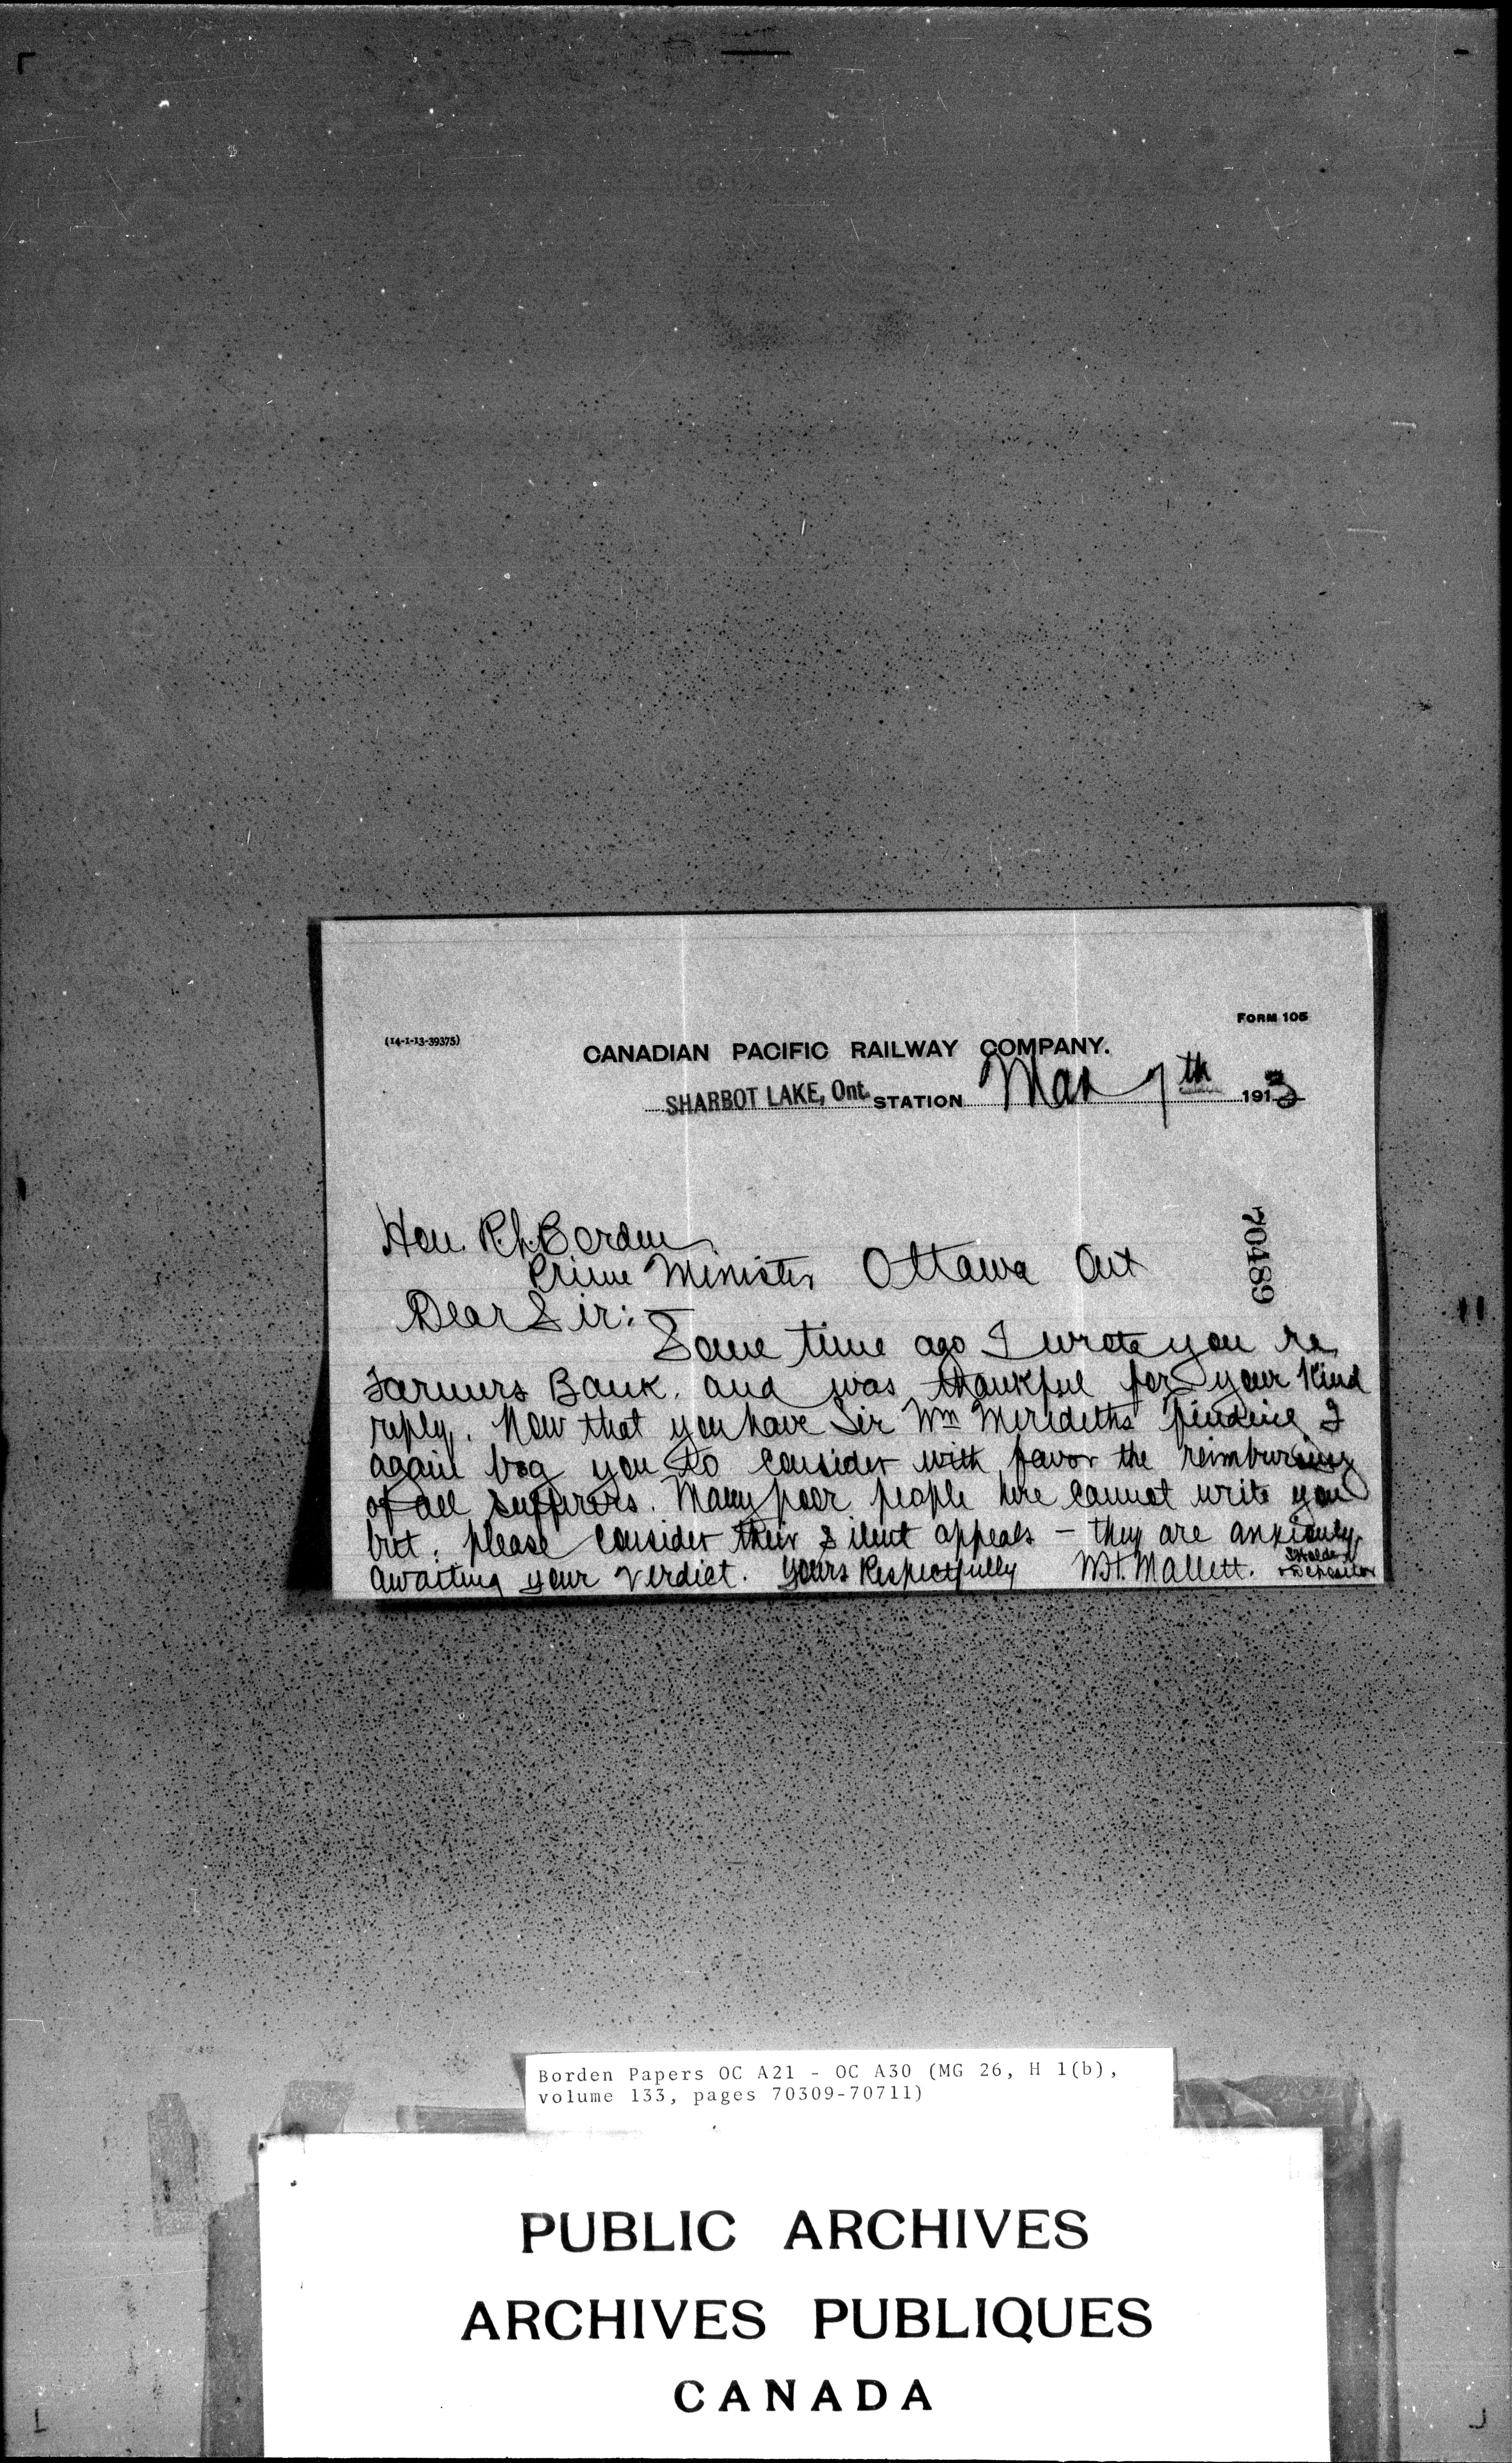 FORM 105
(14-1-13-39375)
CANADIAN PACIFIC RAILWAY COMPANY.
SHARBOT LAKE, Ont. STATION Mar 7th 1913
70489
Hon. R.L. Borden
Prime Minister Ottawa Ont
Dear Sir:-
Some time ago I wrote you re
Farmers Bank. and was thankful for your kind
reply. Now that you have Sir Wm Merediths finding I
again beg you to consider with favor the reimbursing
of all sufferers. Many poor people here cannot write you
but. please consider their silent appeals - they are anxiously
awaiting your verdict. Yours Respectfully W.H. Mallett. SHolder
+ Depositor
Borden Papers OC A21 - OC A30 (MG 26, H 1(b),
volume 133, pages 70309-70711)
PUBLIC ARCHIVES
ARCHIVES PUBLIQUES
CANADA